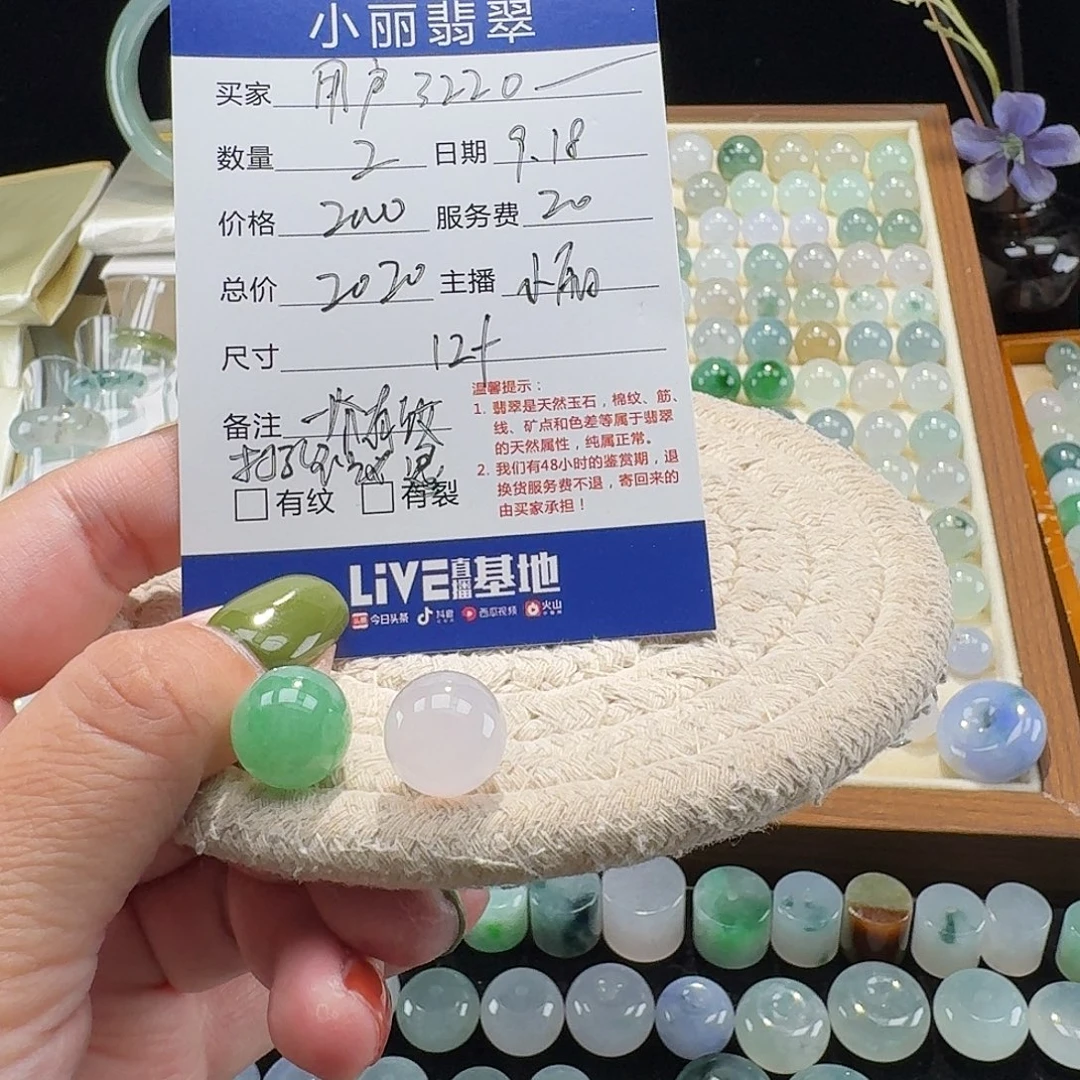 小丽翡翠
买家 用户3220
数量 2 日期 9.18
价格 2000 服务费 20
总价 2020 主播 小丽
尺寸 12+
备注 有纹
打孔
有纹 有裂
温馨提示：
1. 翡翠是天然玉石，棉纹、筋、
线、矿点和色差等属于翡翠
的天然属性，纯属正常。
2. 我们有48小时的鉴赏期，退
换货服务费不退，寄回来的
由买家承担！
LiVE直播基地
今日头条 抖音 西瓜视频 火山